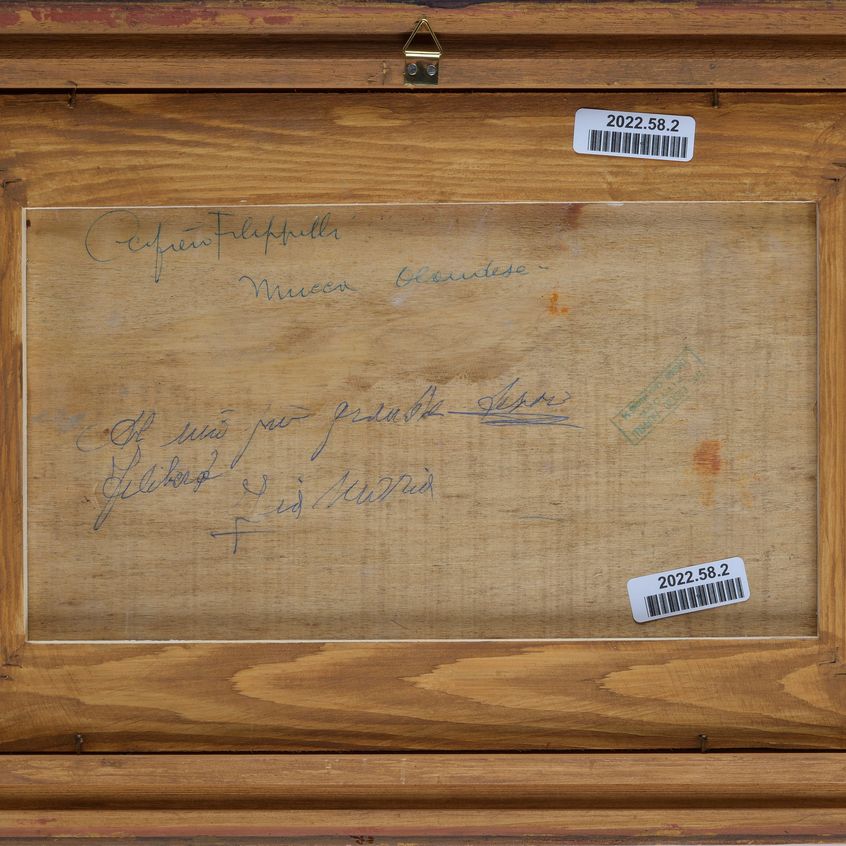 2022.58.2
Cafiero Filippelli
Mucca Olandese
Al mio più grande tesoro
Filiberto Zia Marria
2022.58.2